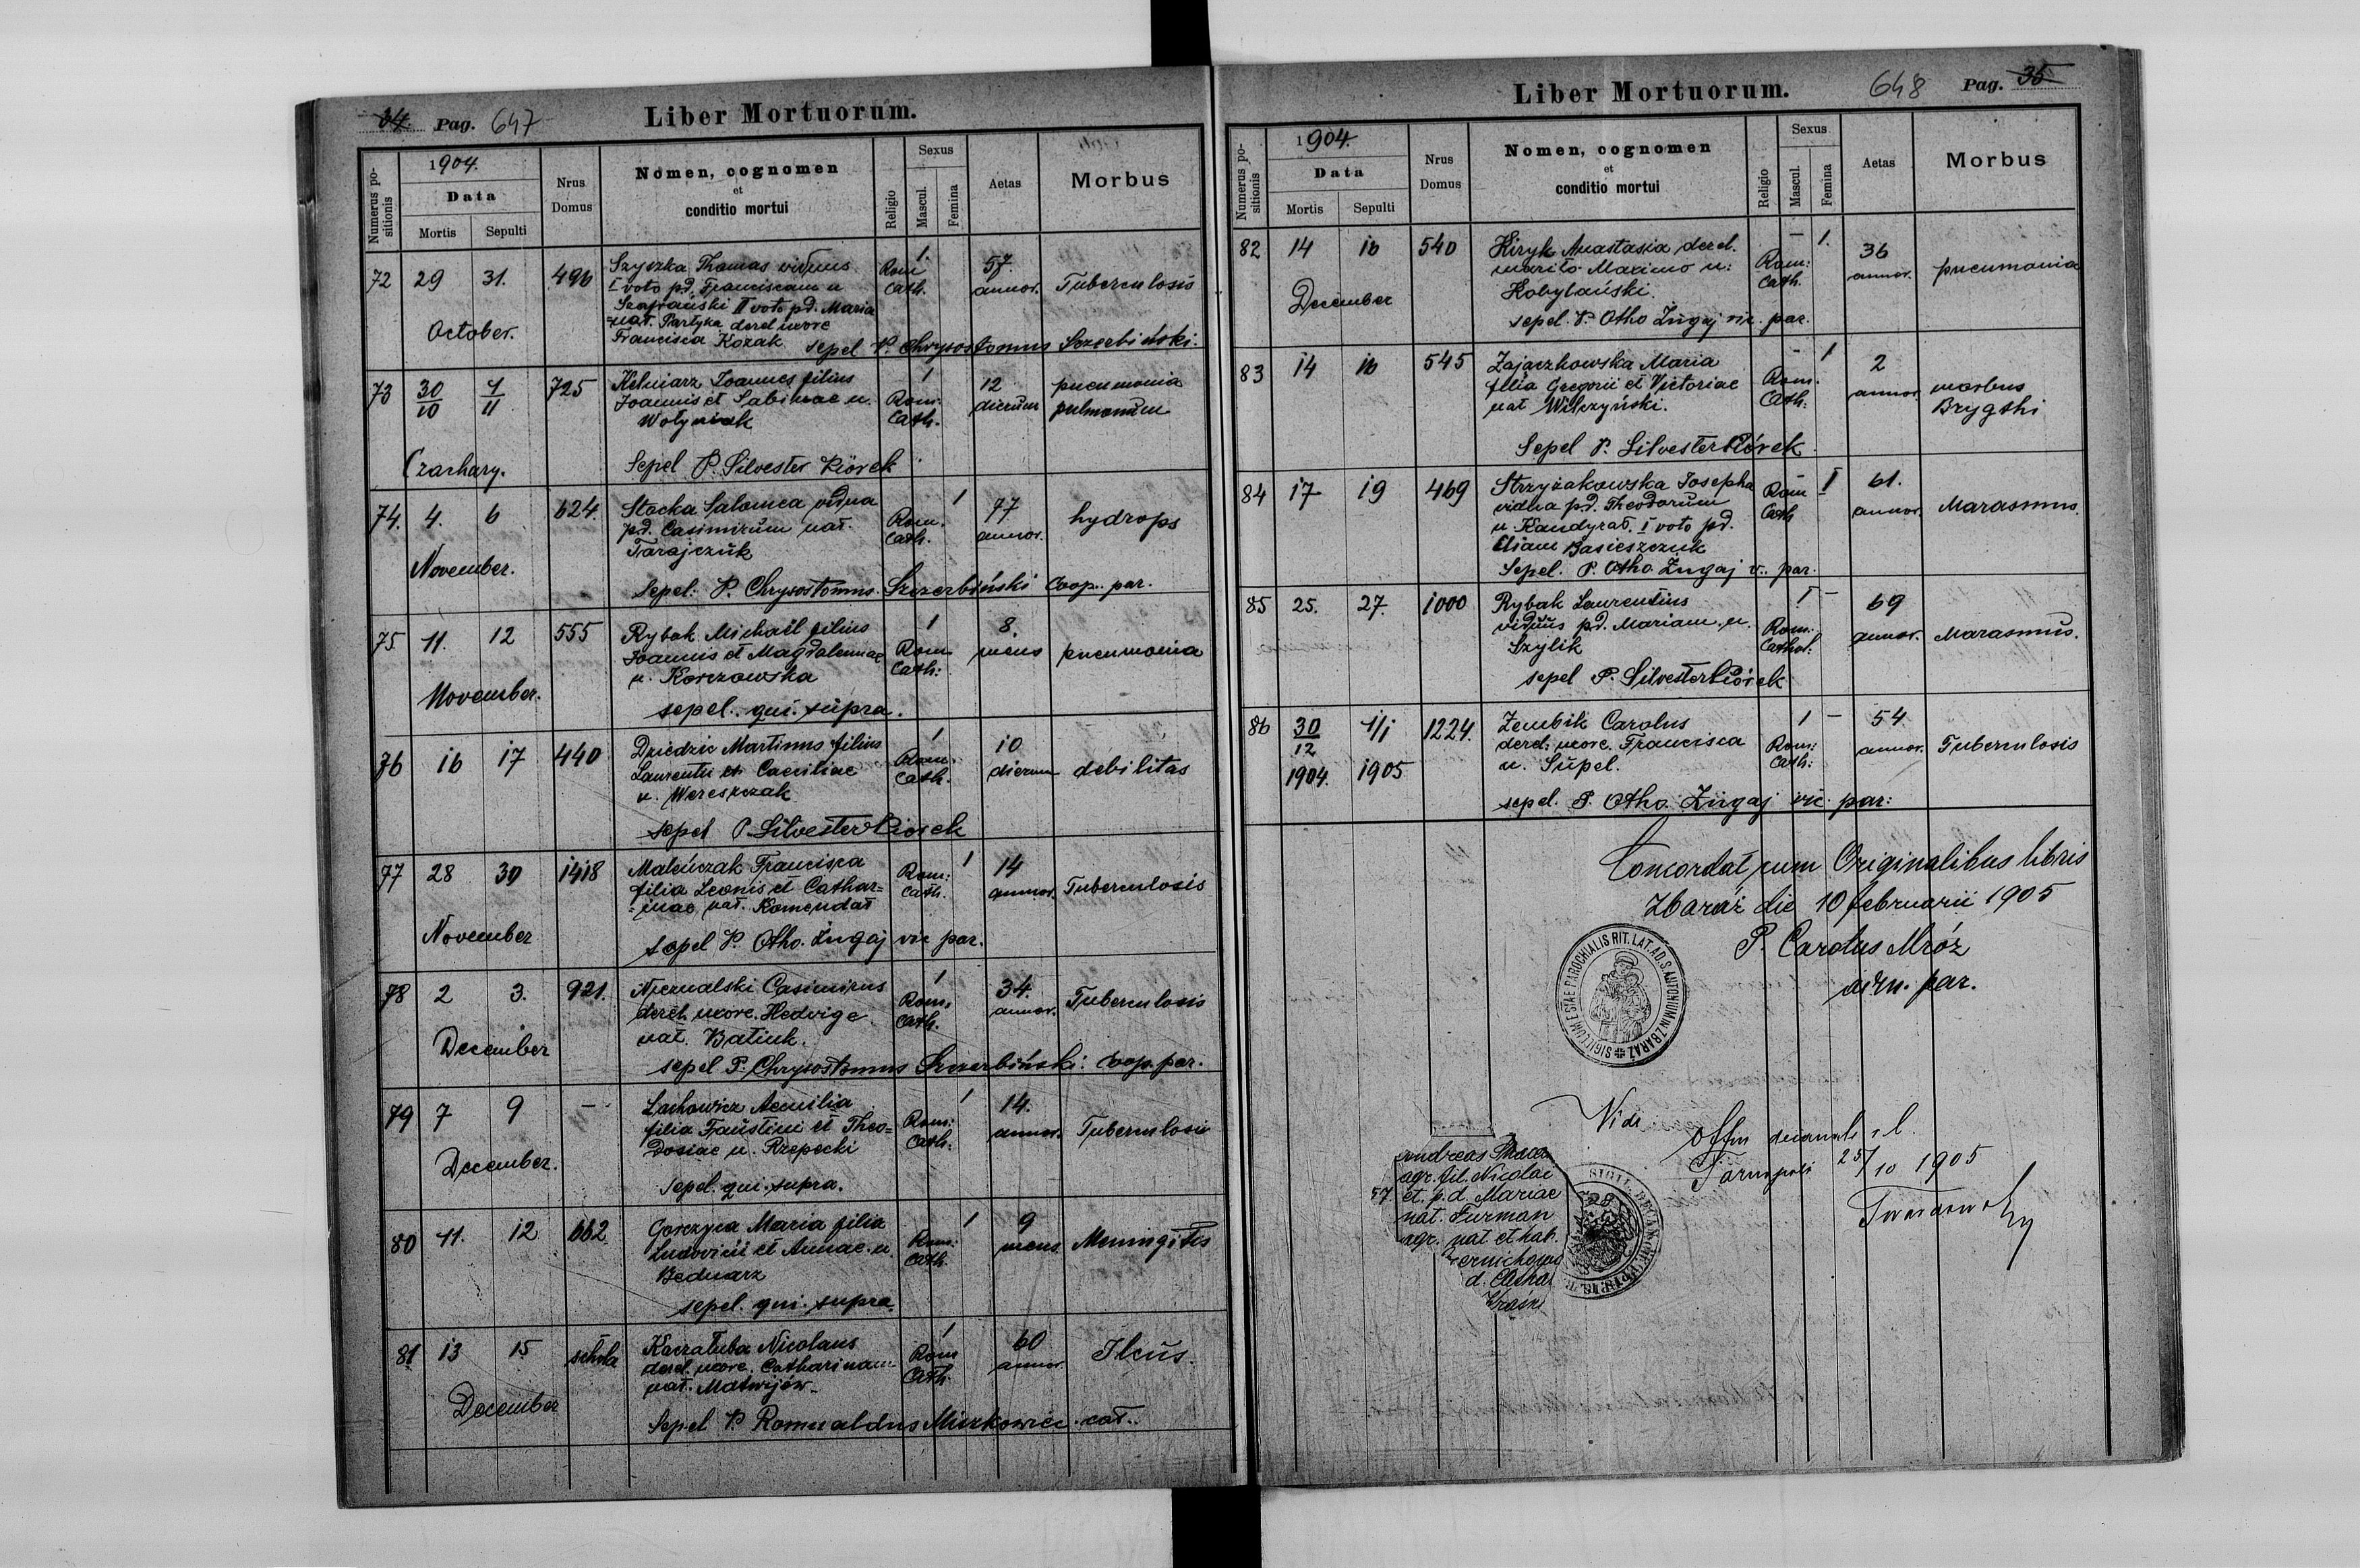 34. Pag. 647
Liber Mortuorum.
Numerus positionis
1904.
Data
Mortis Sepulti
Nrus Domus
Nomen, cognomen
et
conditio mortui
Religio
Sexus
Mascul. Femina
Aetas
Morbus
72 29 31. 496 Szyszka Thomas viduus Rom 1. 57. Tuberculosis
I voto pd. Franciscam n Cath. annor.
Szafrański II voto pd. Maria
nat. Partyka derel uxore
October. Francisca Kozak sepel P. Chrysostomus Szczerbiński.
73 30/10 1/11 725 Kelniarz Joannes filius 1 12 pneumonia
Joannis et Sabinae n. Rom. dierum pulmonum
Wołyniak Cath.
Czachary. Sepel P. Silvester Piórek
74. 4. 6 624. Stocka Salomea vidua 1 77 hydrops
pd. Casimirum nat. Rom. annor.
Tarajczuk Cath.
November.
Sepel. P. Chrysostomus Szczerbiński Coop. par.
75 11. 12 555 Rybak Michael filius 1 8. pneumonia
Joannis et Magdalennae Rom. mens
n. Korczowska Cath.
November.
sepel. qui. supra.
76 16 17 440 Dziedzic Martinus filius 1 10 debilitas
Laurentii et Caeciliae Rom. dierum
n. Wereszczak Cath.
sepel P. Silvester Piorek
77 28 30 1418 Maleńczak Francisca Rom: 1 14 Tuberculosis
filia Leonis et Cathar= Cath. annor.
=inae nat. Komendat
November
sepel P. Otho. Żugaj vic par.
78 2 3. 921. Nieznalski Casimirus 1 34. Tuberculosis
derel. uxore. Hedvige Rom. annor.
nat. Batiuk. Cath.
December
sepel P. Chrysostomus Szczerbiński. Coop. par.
79 7 9 - Lachowicz Aemilia 1 14. Tuberculosis
filia Faustini et Theo= Rom: annor.
Dosiae n. Rzepecki Cath.
December.
Sepel. qui. supra.
80 11. 12 662 Gorczyca Maria filia 1 9 Meningitis
Ludovici et Annae n. Rom: mens
Bednarz Cath.
sepel. qui. supra.
81 13 15 schola Kaczałuba Nicolaus 1 60 Ileus.
derel uxore. Catharinam Rom annor.
nat. Matwijów Cath
December
Sepel P. Romualdus cat.
Liber Mortuorum.
648 Pag. 35
Numerus positionis
1904.
Data
Mortis Sepulti
Nrus Domus
Nomen, cognomen
et
conditio mortui
Religio
Sexus
Mascul. Femina
Aetas
Morbus
82 14 16 540 Hiryk Anastasia derel. - 1. 36 pneumonia
marito Maximo n: Rom: annor.
Kobylański. Cath.
December
sepel. P. Otho Żugaj vic. par.
83 14 16 545 Zajączkowska Maria - 1 2 morbus
filia Gregorii et Victoriae Rom. annor. Brygthi
nat Wilczyński. Cath:
Sepel P. Silvester Piórek
84 17 19 469 Strzyżakowska Josepha - 1 61. Marasmus.
vidua pd. Theodorum Rom annor.
n. Kandyrat. I voto pd. Cath
Eliam Basieszczuk
Sepel. P. Otho Żugaj v. par.
85 25. 27. 1000 Rybak Laurentius 1 - 69 Marasmus.
viduus pd. Mariam n. Rom: annor.
Szylik Cathol:
sepel P. Silvester Piórek
86 30/12 1/1 1224. Zembik Carolus 1 - 54 Tuberculosis
1904. 1905 derel: uxore. Francisca Rom: annor.
n. Supel. Cath:
sepel. P. Otho. Żugaj vic. par:
Concordat cum Originalibus libris
Zbaraż die 10 februarii 1905
P. Carolus Mróz
adm. par.
SIGILLUM ECCLAE PAROCHIALIS RIT. LAT. AD S. ANTONIUM IN ZBARAŻ
Vidi
Offm decanale r. l.
Tarnopoli 25/10 1905
Twardowsky
agr. fil. Nicolai
57 et p.d. Mariae
nat. Furman
agr. nat et hab.